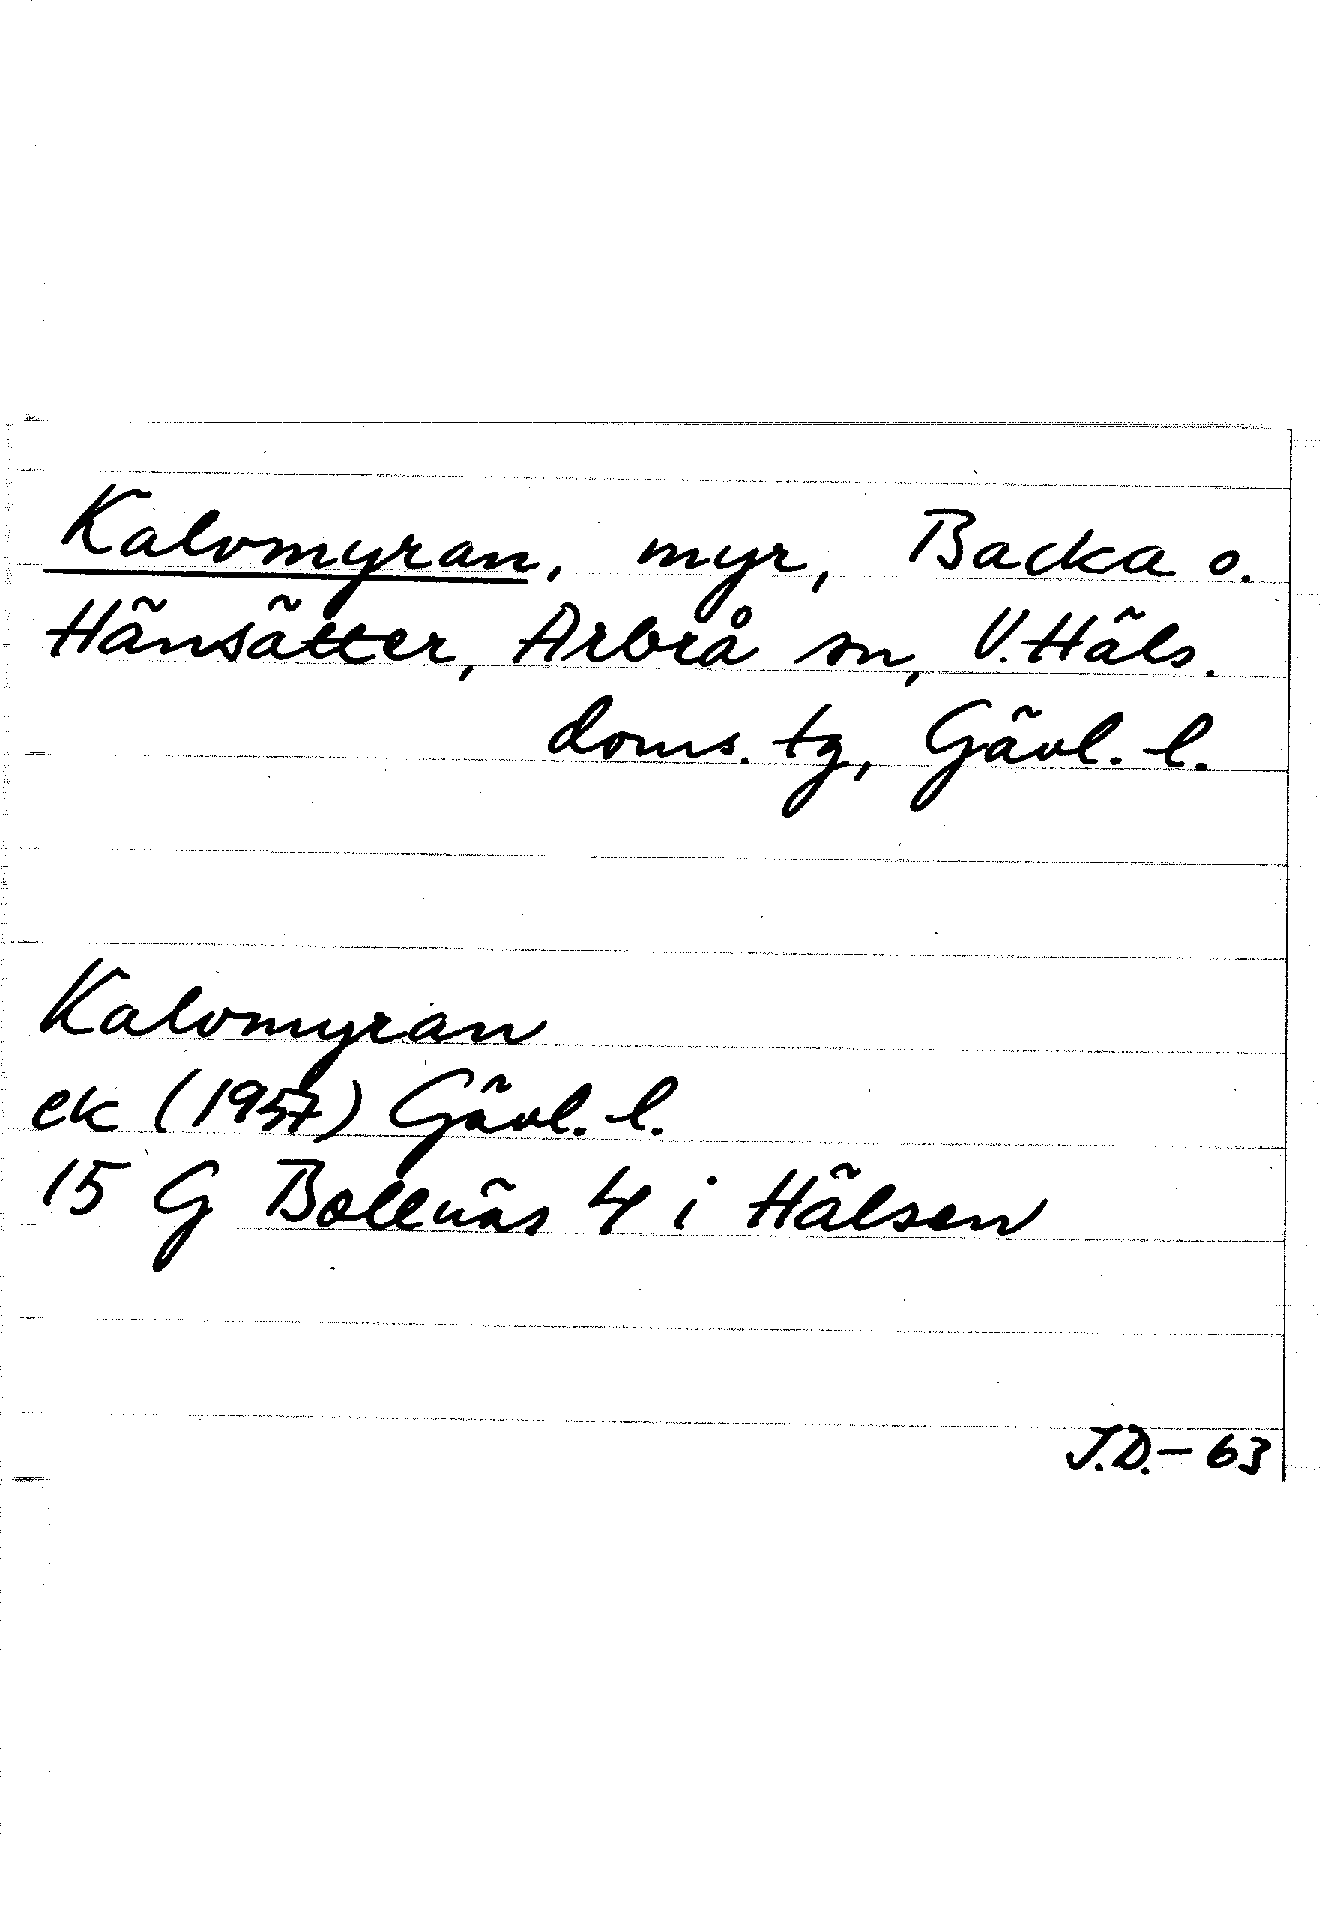 Kalvmyran, myr, Backa o.
Hänsätter, Arbrå sn, V. Häls.
doms. tg, Gävl. l.
Kalvmyran
ek (1957) Gävl. l.
15 G Bollnäs 4 i Hälsen
J.D. - 63